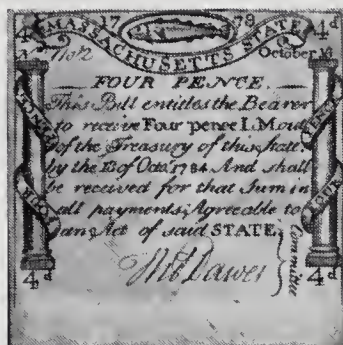 17 78
4d MASSACHUSETTS STATE 4d
October
FOUR PENCE.
This Bill entitles the Bearer
to receive Four pence L.M. out
of the Treasury of this State.
by the 18 of Octo. 1784. And shall
be received for that Sum in
all payments, Agreeable to
an Act of said STATE;
Committee
4d 4d